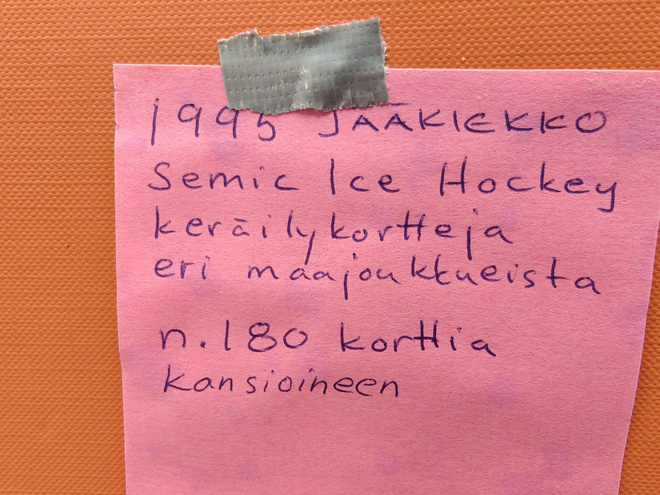 1995 JÄÄKIEKKO
Semic Ice Hockey
keräilykortteja
eri maajoukkueista
n. 180 korttia
kansioineen